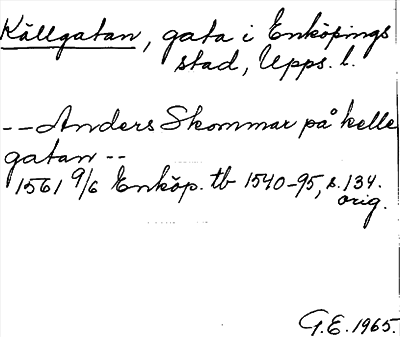 Källgatan, gata i Enköpings
stad, Upps. l.
--Anders Skommar på kelle
gatan--
1561 9/6 Enköp. tb 1540-95, s. 134.
orig.
G.E. 1965.